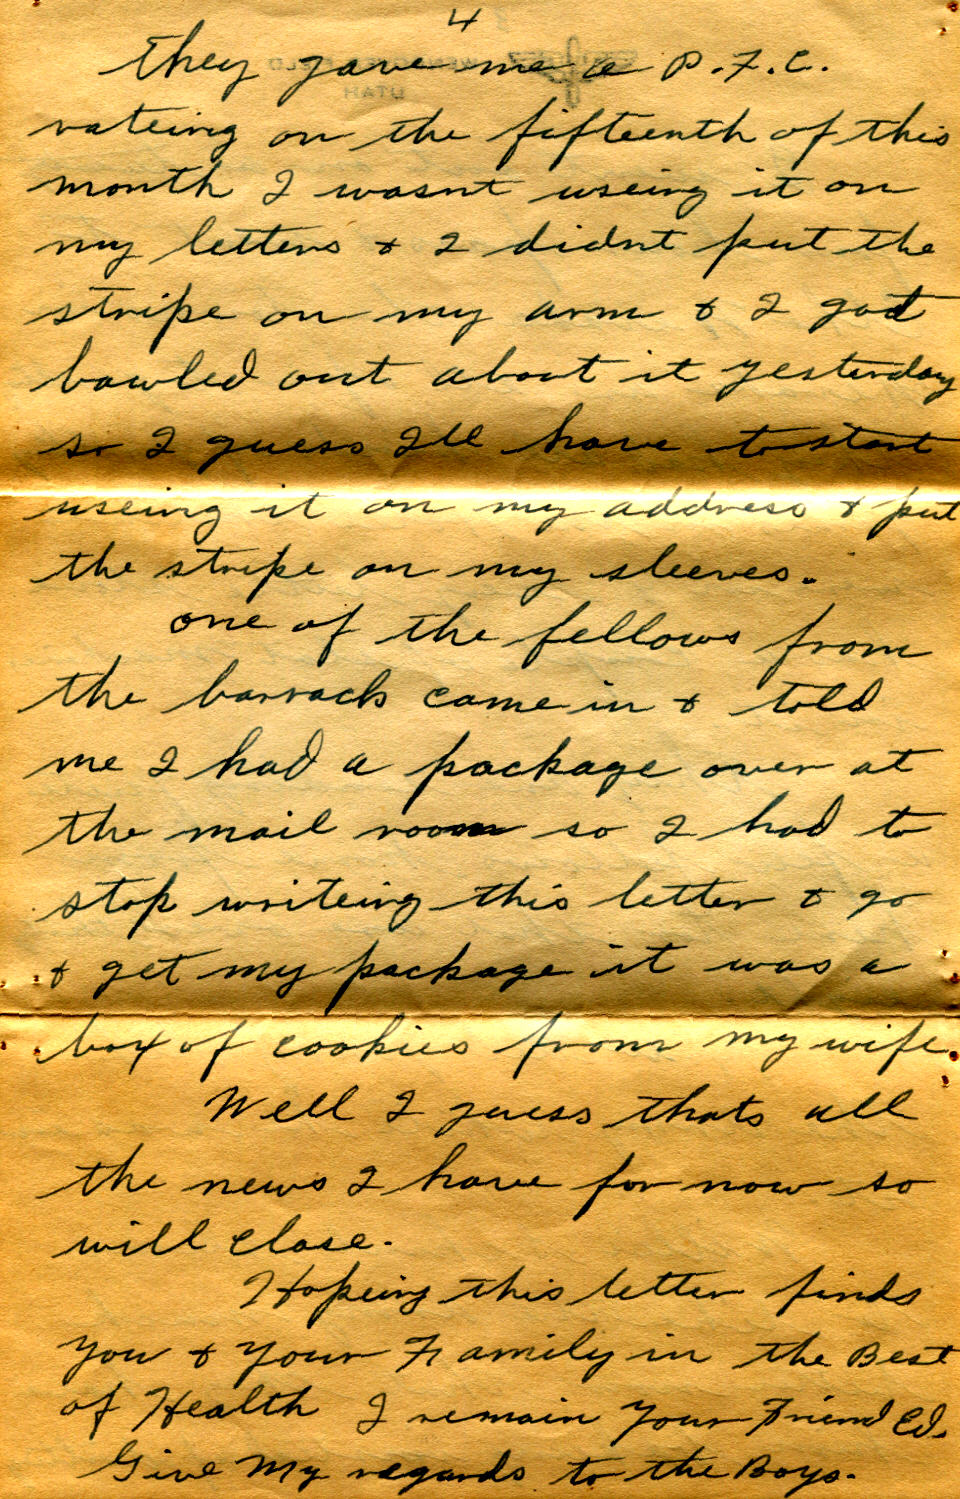 4
They gave me a P.F.C.
rateing on the fifteenth of this
month I wasnt useing it on
my letters & I didnt put the
stripe on my arm & I got
bawled out about it yesterday
so I guess Ill have to start
useing it on my address & put
the stripe on my sleeves.
One of the fellows from
the barrack came in & told
me I had a package over at
the mail room so I had to
stop writeing this letter & go
& get my package it was a
box of cookies from my wife.
Well I guess thats all
the news I have for now so
will close.
Hopeing this letter finds
you & your Family in the Best
of Health I remain your Friend Ed.
Give My regards to the Boys.